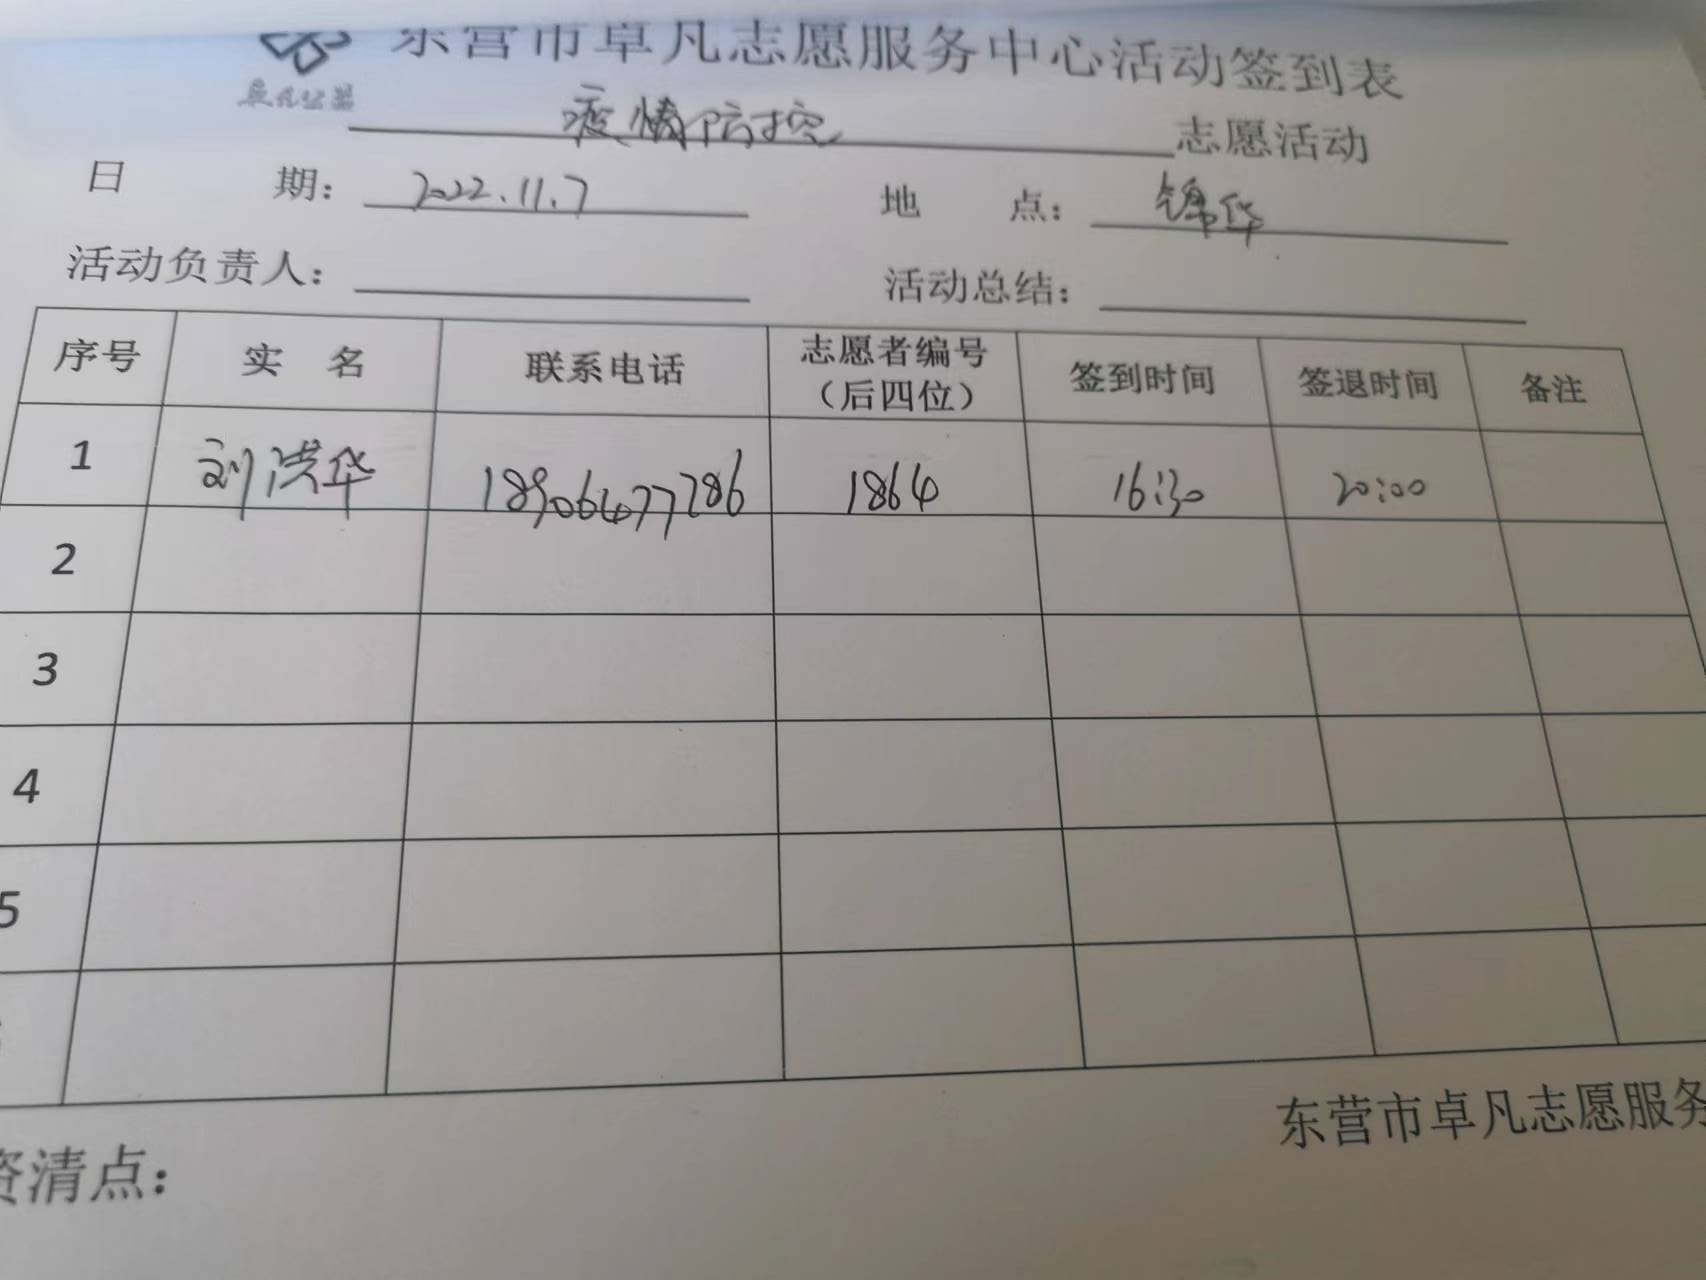 东营市卓凡志愿服务中心活动签到表
卓凡公益
疫情防控 志愿活动
日 期: 2022.11.7 地 点: 锦华
活动负责人: 活动总结:
序号 实 名 联系电话 志愿者编号 签到时间 签退时间 备注
(后四位)
1 刘洪华 18906477286 1864 16:30 20:00
2
3
4
5
东营市卓凡志愿服务
资清点: